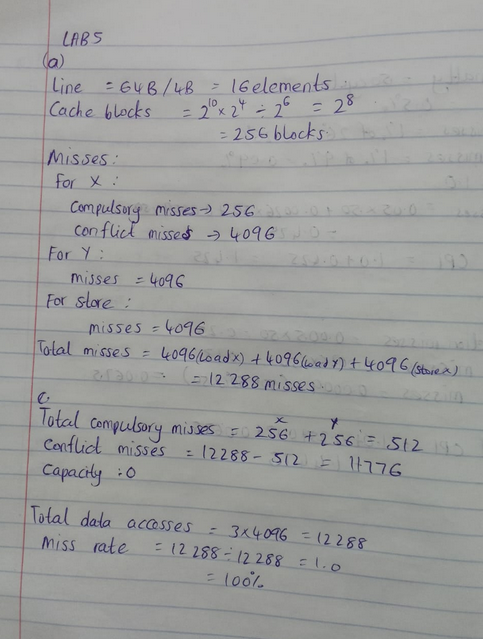 LAB5
(a)
Line = 64B/4B = 16 elements
Cache blocks = 2¹⁰ × 2⁴ ÷ 2⁶ = 2⁸
= 256 blocks.
Misses:
For X:
Compulsory misses → 256
conflict misses → 4096
For Y:
misses = 4096
For store:
misses = 4096
Total misses = 4096(Load x) + 4096(Load y) + 4096(store x)
= 12 288 misses.
C.
Total compulsory misses = 256 (x) + 256 (y) = 512
Conflict misses = 12288 - 512 = 11776
Capacity : 0
Total data accosses = 3×4096 = 12288
Miss rate = 12 288 ÷ 12 288 = 1.0
= 100%